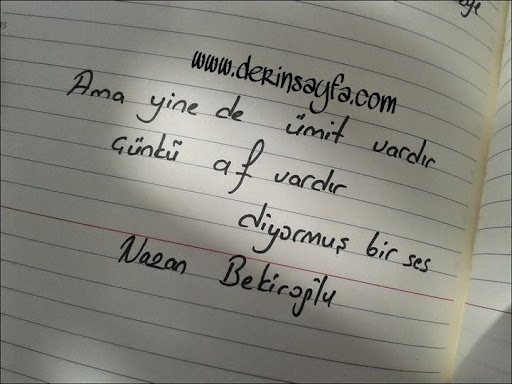 www.derinsayfa.com
Ama yine de ümit vardır
Çünkü af vardır
diyormuş bir ses
Nazan Bekiroğlu